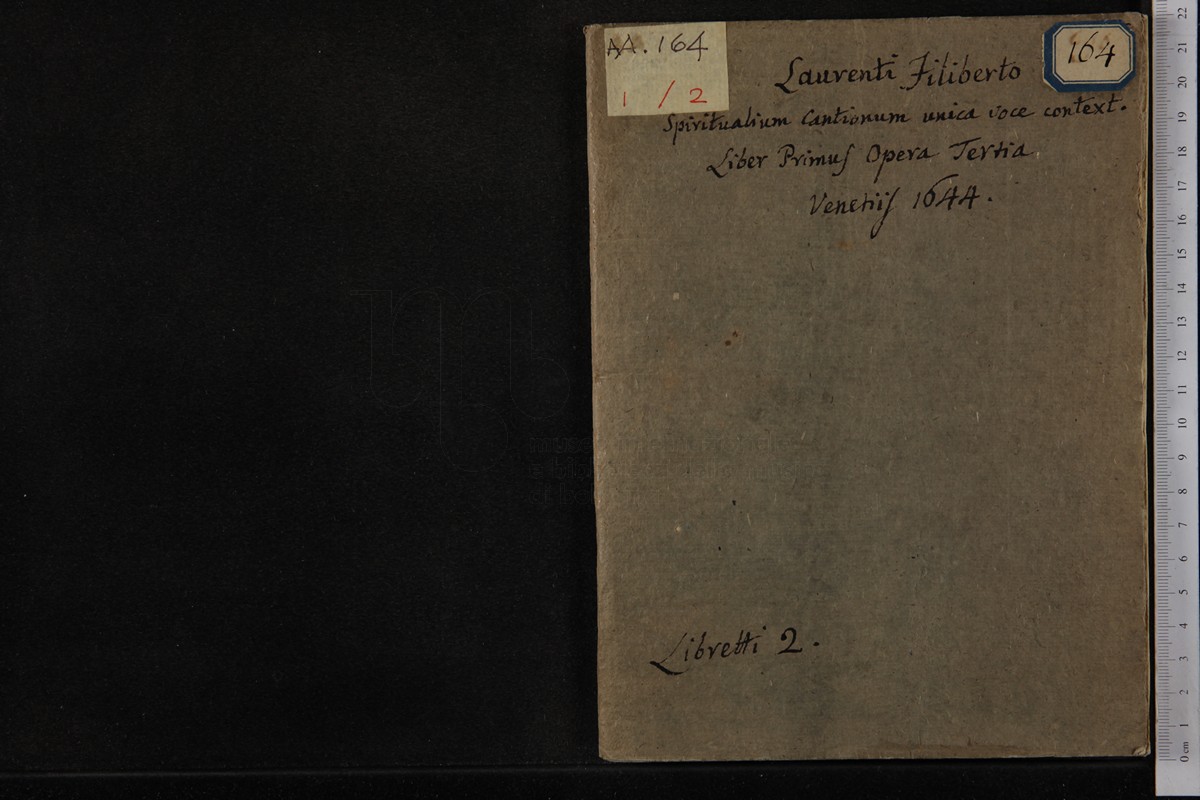 AA. 164
1 / 2
164
Laurenti Filiberto
Spiritualium Cantionum unica voce context.
Liber Primus Opera Tertia
Venetiis 1644.
Libretti 2.
22
21
20
19
18
17
16
15
14
13
12
11
10
9
8
7
6
5
4
3
2
1
0 cm